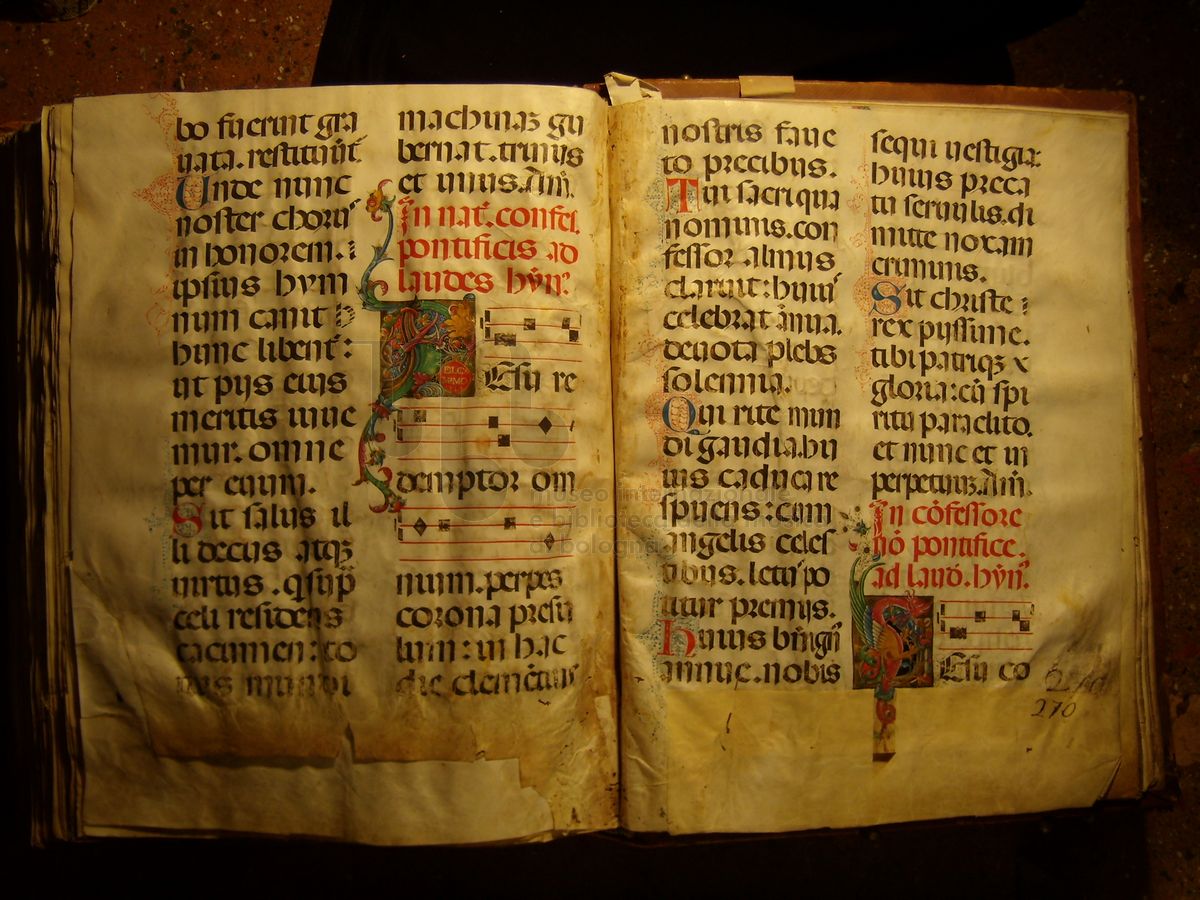 bo fuerint gra
uata. restituūt
Unde nunc
noster chorꝰ
in honorem.
ipsius hym
num canit
hunc libent̄:
ut pijs eius
meritis iuue
mur. omne
per euum.
Sit salus il
li decus atqꝫ
uirtus. q̄ sup̄
celi residens
cacumen: to
tius mundi
machinaꝫ gu
bernat. trinus
et unus. Am̄.
In nat̄. confes̄.
pontificis ad
laudes hȳn.
Esu re
demptor om
nium. perpes
corona presu
lum: in hac
die clemētius
nostris faue
to precibus.
Tui sacri qua
nominis. con
fessor almus
claruit: huiꝰ
celebrat ānua.
deuota plebs
solennia.
Qui rite mun
di gaudia. hu
ius caduca re
spuens: cum
angelis celes
tibus. letus po
titur premijs.
Huius bn̄gn̄
annue. nobis
sequi uestigia:
huius preca
tu seruulis. di
mitte noxam
criminis.
Sit christe
rex pijssime.
tibi patriqꝫ
gloria: cū spi
ritu paraclito.
et nunc et in
perpetuū. Am̄.
In cōfessore
nō pontifice.
ad laud̄. hȳn.
Esu co
270
museo internazionale
e biblioteca della musica
di bologna